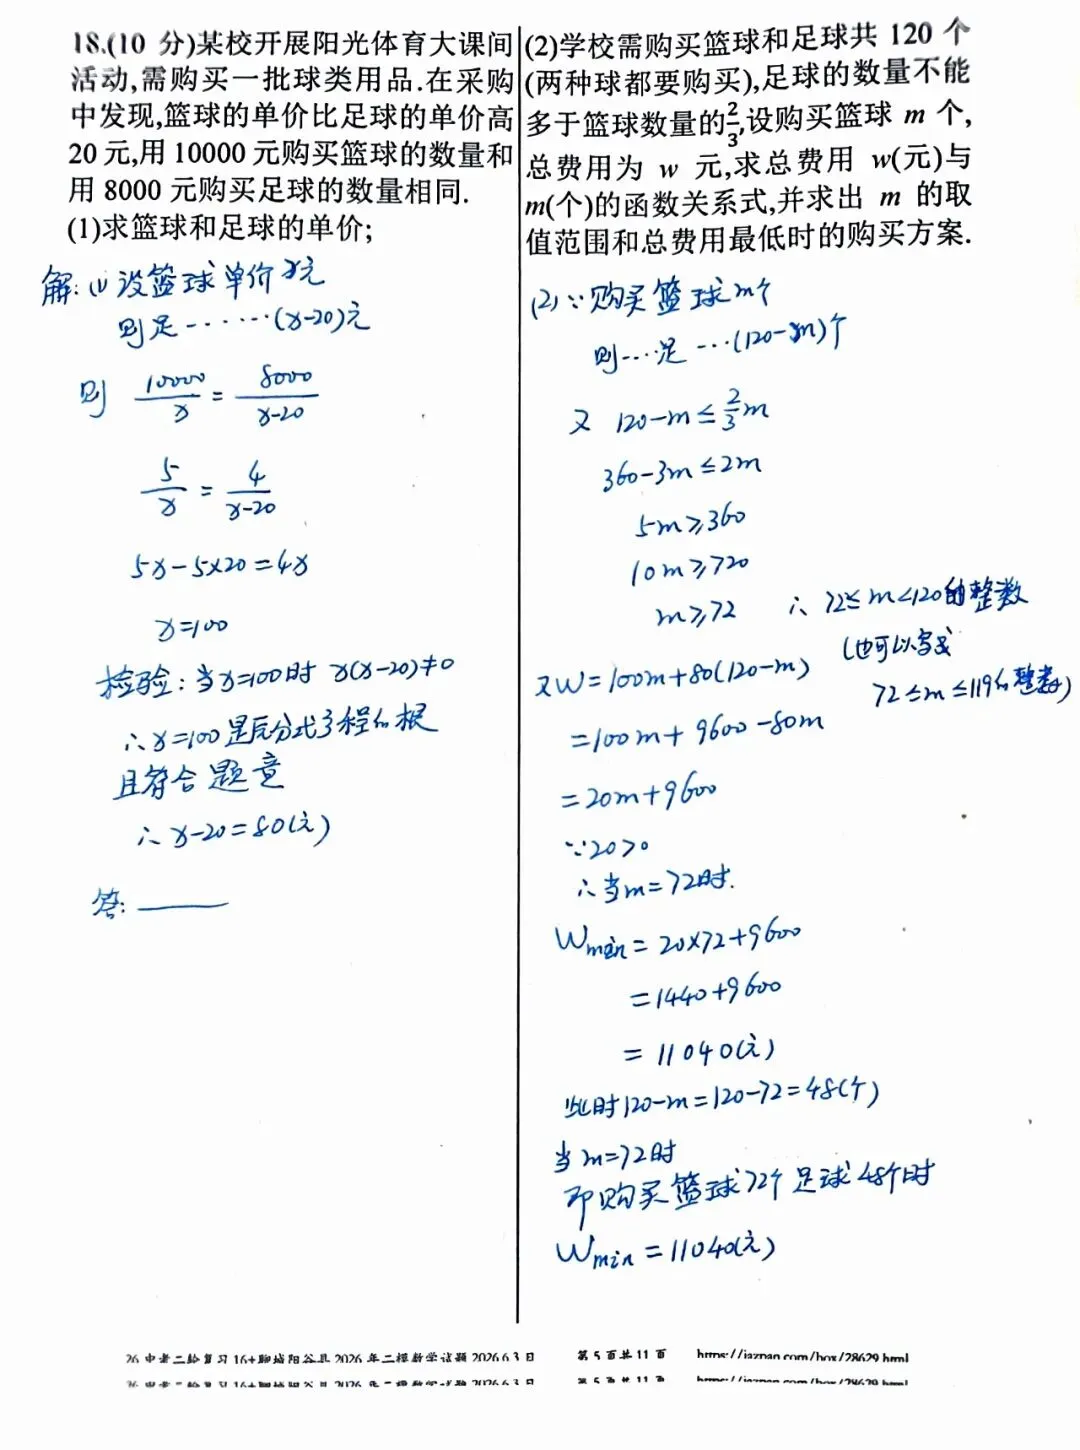 18.(10 分)某校开展阳光体育大课间
活动,需购买一批球类用品.在采购
中发现,篮球的单价比足球的单价高
20 元,用 10000 元购买篮球的数量和
用 8000 元购买足球的数量相同.
(1)求篮球和足球的单价;
解:(1)设篮球单价x元
则足……(x-20)元
则 10000/x = 8000/(x-20)
5/x = 4/(x-20)
5x-5×20=4x
x=100
检验:当x=100时 x(x-20)≠0
∴x=100是原分式方程的根
且符合题意
∴x-20=80(元)
答:
(2)学校需购买篮球和足球共 120 个
(两种球都要购买),足球的数量不能
多于篮球数量的2/3,设购买篮球 m 个,
总费用为 w 元,求总费用 w(元)与
m(个)的函数关系式,并求出 m 的取
值范围和总费用最低时的购买方案.
(2)∵购买篮球m个
则…足…(120-m)个
又 120-m≤2/3m
360-3m≤2m
5m≥360
10m≥720
m≥72 ∴72≤m<120的整数
(也可以写成
72≤m≤119的整数)
又W=100m+80(120-m)
=100m+9600-80m
=20m+9600
∵20>0
∴当m=72时.
Wmin=20×72+9600
=1440+9600
=11040(元)
此时120-m=120-72=48(个)
当m=72时
即购买篮球72个足球48个时
Wmin=11040(元)
26 中考二轮复习 16+聊城阳谷县 2026 年二模数学试题 2026.6.3 日 第 5 页共 11 页 https://jazpan.com/box/28629.html
26 中考二轮复习 16+聊城阳谷县 2026 年二模数学试题 2026.6.3 日 第 5 页共 11 页 https://jazpan.com/box/28629.html